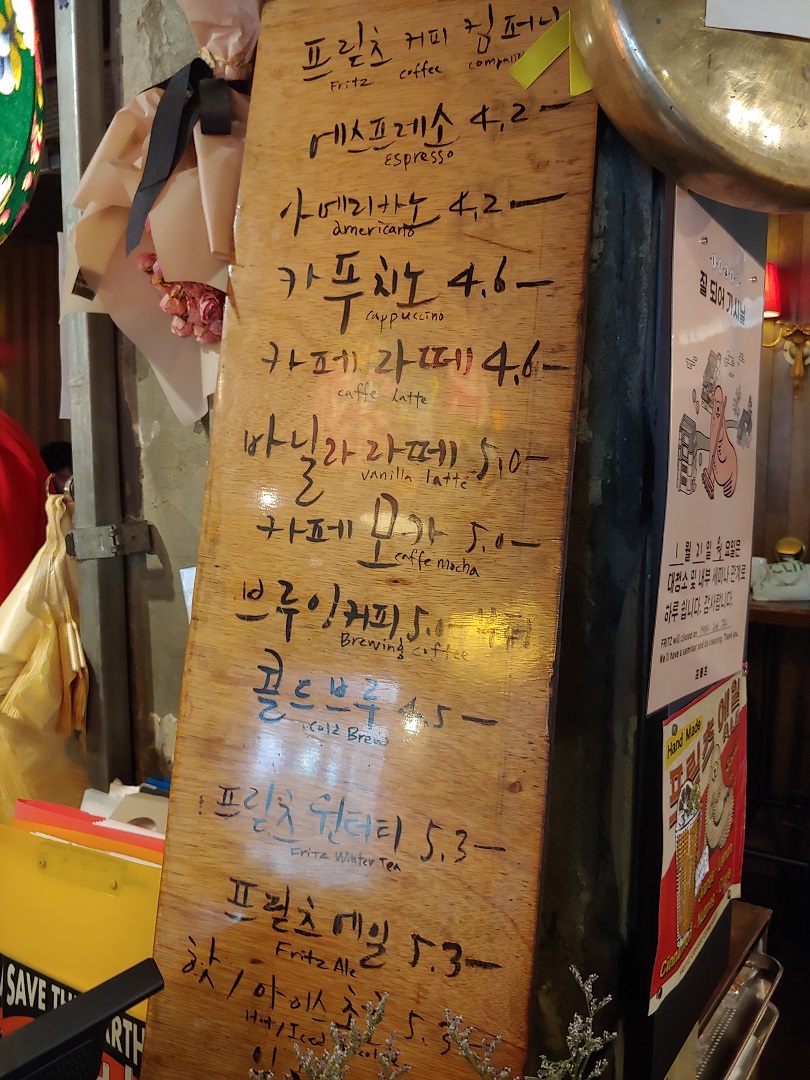 프릳츠 커피 컴퍼니
Fritz coffee company
에스프레소 4.2—
Espresso
아메리카노 4.2—
americano
카푸치노 4.6—
cappuccino
카페 라떼 4.6—
caffe latte
바닐라 라떼 5.0—
vanilla latte
카페 모카 5.0—
caffe mocha
브루잉커피 5.0
Brewing coffee
콜드브루 4.5—
Cold Brew
프릳츠 윈터티 5.3—
Fritz Winter Tea
프릳츠 에일 5.3—
Fritz Ale
핫/아이스 5.3
Hot/Iced
잘 되어 가시날
1월 21일 월요일은
대청소 및 내부 세미나 관계로
하루 쉽니다. 감사합니다.
FRITZ will closed on
We'll have a seminar and do cleaning. Thank you.
프릳츠
Hand Made
프릳츠 에일
ALE
SAVE THE EARTH